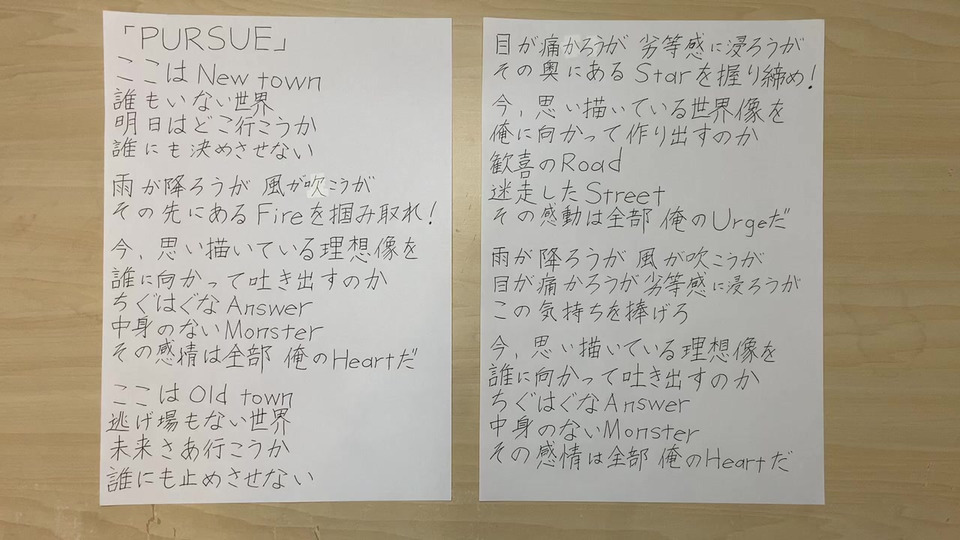 「PURSUE」
ここは New town
誰もいない世界
明日はどこ行こうか
誰にも決めさせない
雨が降ろうが 風が吹こうが
その先にある Fireを掴み取れ!
今、思い描いている理想像を
誰に向かって吐き出すのか
ちぐはぐな Answer
中身のない Monster
その感情は全部 俺のHeartだ
ここは Old town
逃げ場もない世界
未来さあ行こうか
誰にも止めさせない
目が痛かろうが 劣等感に浸ろうが
その奥にある Starを握り締め!
今、思い描いている世界像を
俺に向かって作り出すのか
歓喜のRoad
迷走したStreet
その感動は全部 俺のUrgeだ
雨が降ろうが 風が吹こうが
目が痛かろうが 劣等感に浸ろうが
この気持ちを捧げろ
今、思い描いている理想像を
誰に向かって吐き出すのか
ちぐはぐな Answer
中身のないMonster
その感情は全部 俺のHeartだ